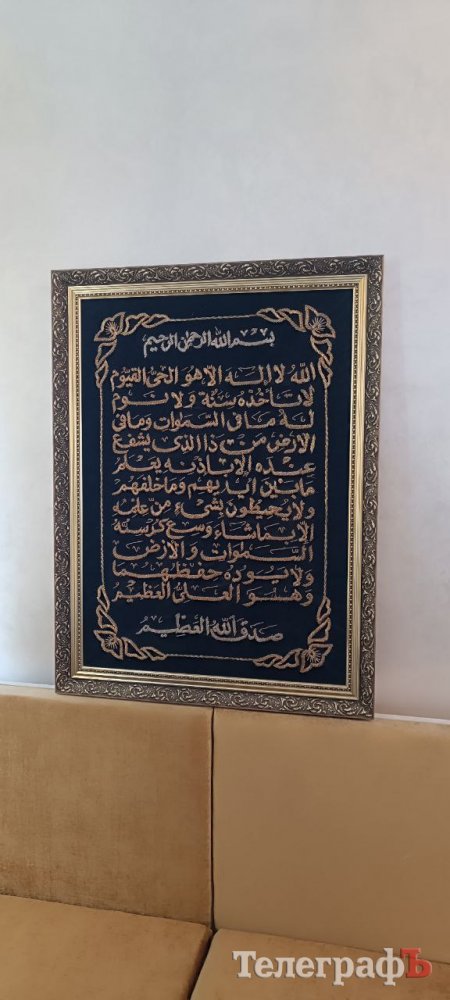 بسم الله الرحمن الرحيم
الله لا إله إلا هو الحي القيوم
لا تأخذه سنة ولا نوم
له ما في السموات وما في
الأرض من ذا الذي يشفع
عنده إلا بإذنه يعلم
ما بين أيديهم وما خلفهم
ولا يحيطون بشيء من علمه
إلا بما شاء وسع كرسيه
السموات والأرض
ولا يؤده حفظهما
وهو العلي العظيم
صدق الله العظيم
ТелеграфЪ